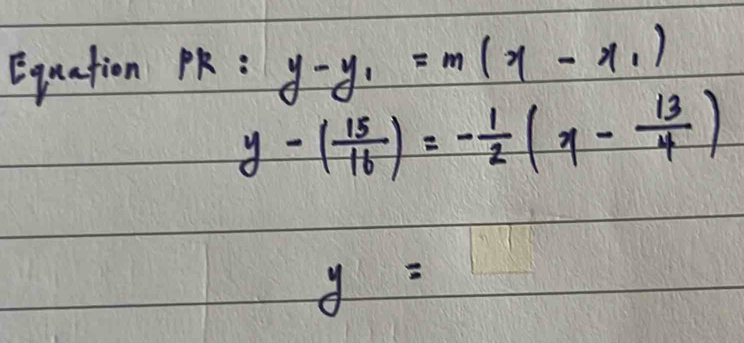 Equation PR : y - y₁ = m (x - x₁)
y - (15/16) = -1/2 (x - 13/4)
y =